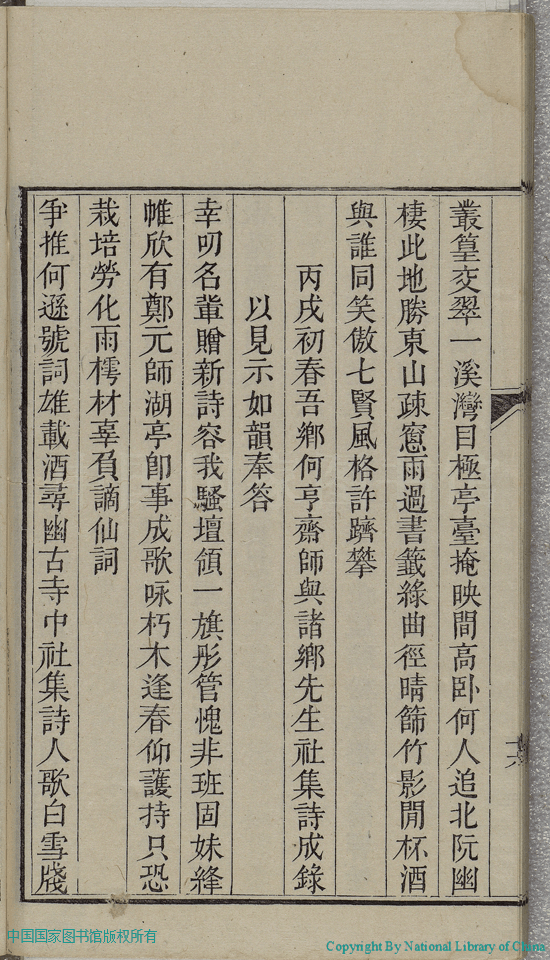 叢篁交翠一溪灣目極亭臺掩映間高卧何人追北阮幽
棲此地勝東山疎窻雨過書籤綠曲徑晴篩竹影閒杯酒
與誰同笑傲七賢風格許躋攀
丙戌初春吾鄉何亨齋師與諸鄉先生社集詩成錄
以見示如韻奉答
幸叨名輩贈新詩容我騷壇領一旗彤管愧非班固妹絳
帷欣有鄭元師湖亭卽事成歌咏朽木逢春仰護持只恐
栽培勞化雨樗材辜負謫仙詞
爭推何遜號詞雄載酒尋幽古寺中社集詩人歌白雪牋
十六
中国国家图书馆版权所有
Copyright By National Library of China